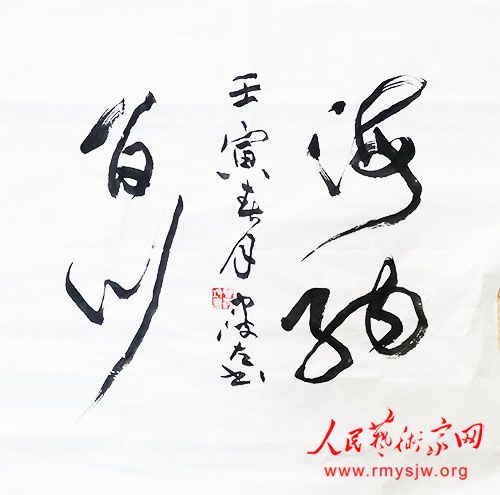 海纳
百川
壬寅春月
人民艺术家网
www.rmysjw.org